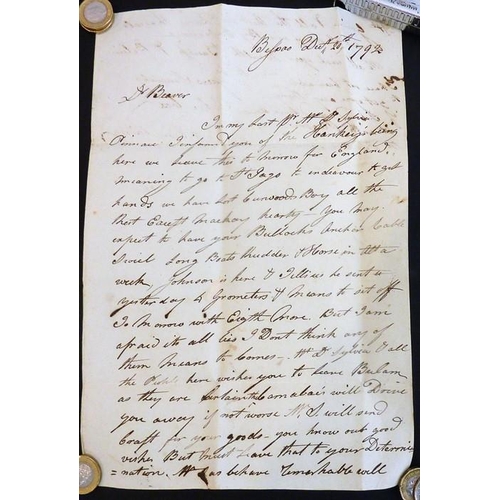 Bissao Decr 20th 1792
Dr Beaver
In my last pr Mr D Sylvia's
Pinnace I informed you of the Hankey's being
here we leave this to morro for England,
meaning to go to St Jago to endeavour to get
hands we have lost Curwood & Boy all the
Rest Except Mackay hearty — you may
expect to have your Bullocks Anchor Cable
Swiel Long Boats Rudder & Horse in
week, Johnson is here & tells us he sent
yesterday 4 Grometers & Means to sit off
To Morro with Eigth More. But I am
afraid its all lies I Dont think any of
them Means to Come — Mr D Sylvia & all
the here wishes you to leave Bulam
as they are Certain the Canabais will Drive
you away if not worse Mr S. will send
Craft for your goods — you know our good
wishes But Must leave that to your Determi
=nation. behave remarkable will